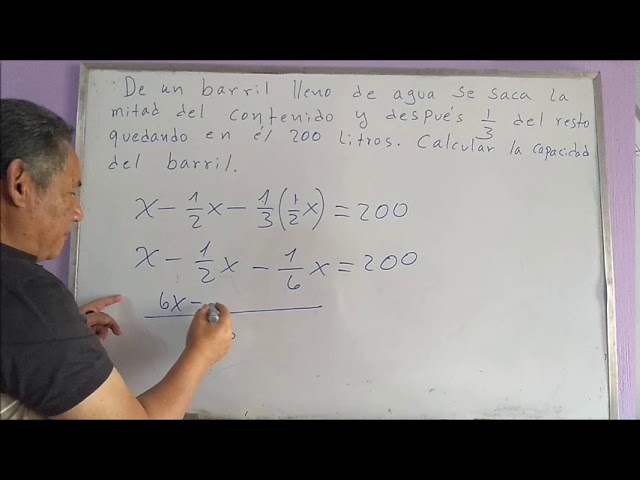 De un barril lleno de agua se saca la
mitad del contenido y después 1/3 del resto
quedando en él 200 litros. Calcular la capacidad
del barril.
x - 1/2 x - 1/3 (1/2 x) = 200
x - 1/2 x - 1/6 x = 200
6x -